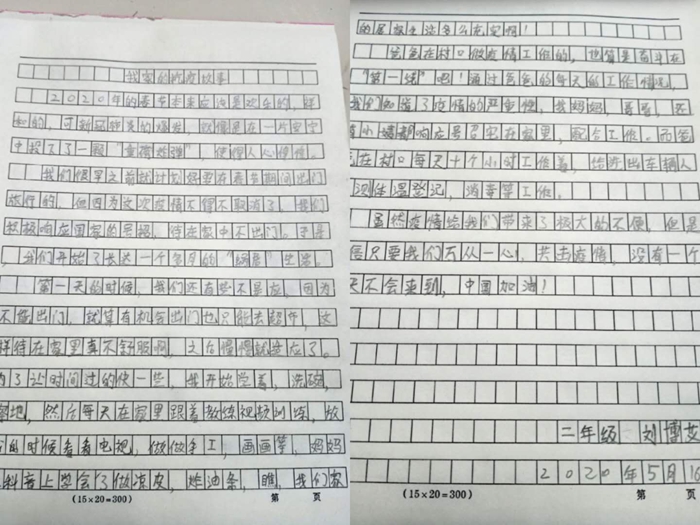 我家的抗疫故事
2020年的春节本来应该是欢乐的，祥
和的，可新冠肺炎的爆发，就像是在一片安宁
中投了了一颗"重磅炸弹"，使得人心惶惶。
我们很早之前就计划好要在春节期间出门
旅行的，但因为这次疫情不得不取消了，我们
积极响应国家的号召，待在家中不出门。于是
，我们开始了长达一个多月的"蜗居"生活。
第一天的时候，我们还有些不适应，因为
不能出门，就算有机会出门也只能去超市，这
样待在家里真不舒服啊，之后慢慢就适应了。
为了让时间过的快一些，我开始学着，洗碗，
地，然后每天在家里跟着教练视频训练，放
的时候看看电视，做做手工，画画等，妈妈
抖音上学会了做凉皮，炸油条，瞧，我们家
(15×20=300)
第 页
的居家生活多么充实啊！
爸爸在村口做疫情工作的，也算是奋斗在
"第一线"吧！通过爸爸的每天的工作情况，
我们知道了疫情的严重性，我妈妈，哥哥，还
有小姨都响应号召宅在家里，配合工作。而爸
爸在村口每天十个小时工作着，给进出车辆人
员测体温登记，消毒等工作。
虽然疫情给我们带来了极大的不便，但是
信只要我们万众一心，共击疫情，没有一个
天不会来到，中国加油！
二年级 刘博文
2020年5月16
(15×20=300)
第 页